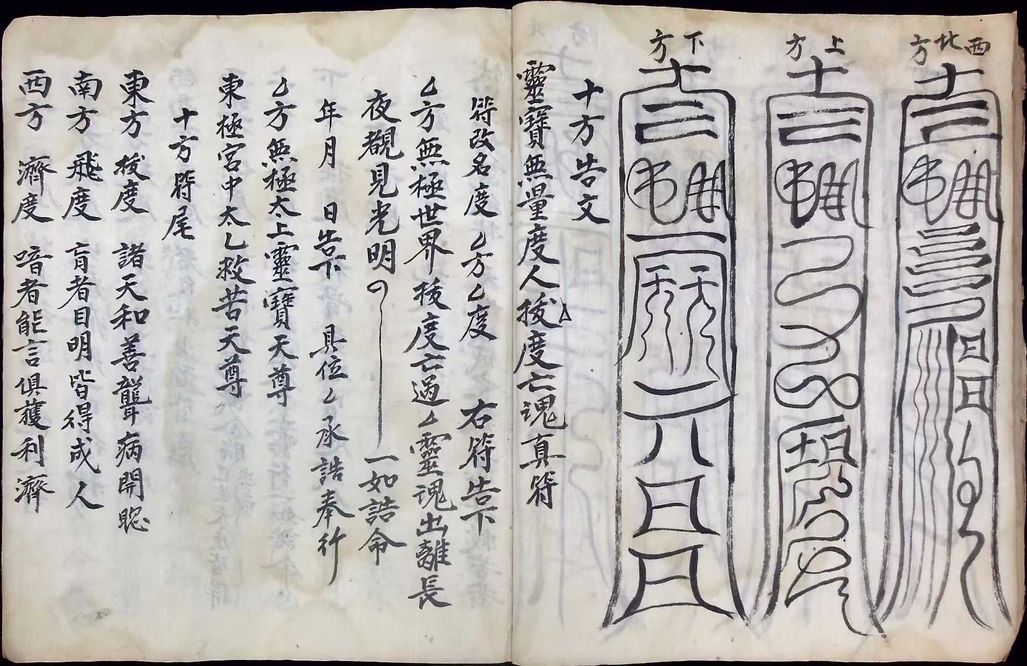 西北方
上方
下方
十方告文
靈寶無量度人拔度亡魂真符
符改名度 厶方厶度 右符告下
厶方無極世界拔度亡過厶靈魂出離長
夜覩見光明 一如誥命
年月 日告下 具位厶承誥奉行
厶方無極太上靈寶天尊
東極宮中太乙救苦天尊
十方符尾
東方 拔度 諸天和善聾病開聦
南方 飛度 肓者目明皆得成人
西方 濟度 喑者能言俱獲利濟